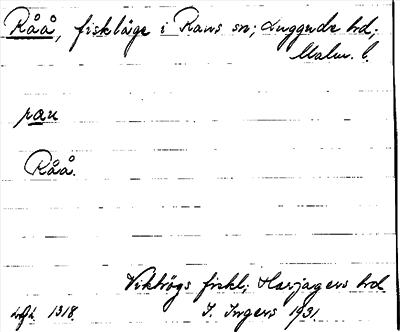 Råå, fiskläge i Raus sn; Luggude hd;
Malm. l.
rau
Råå.
Vikhögs fiskl; Harjagers hd
Ldgh. 1318. I. Ingers 1931